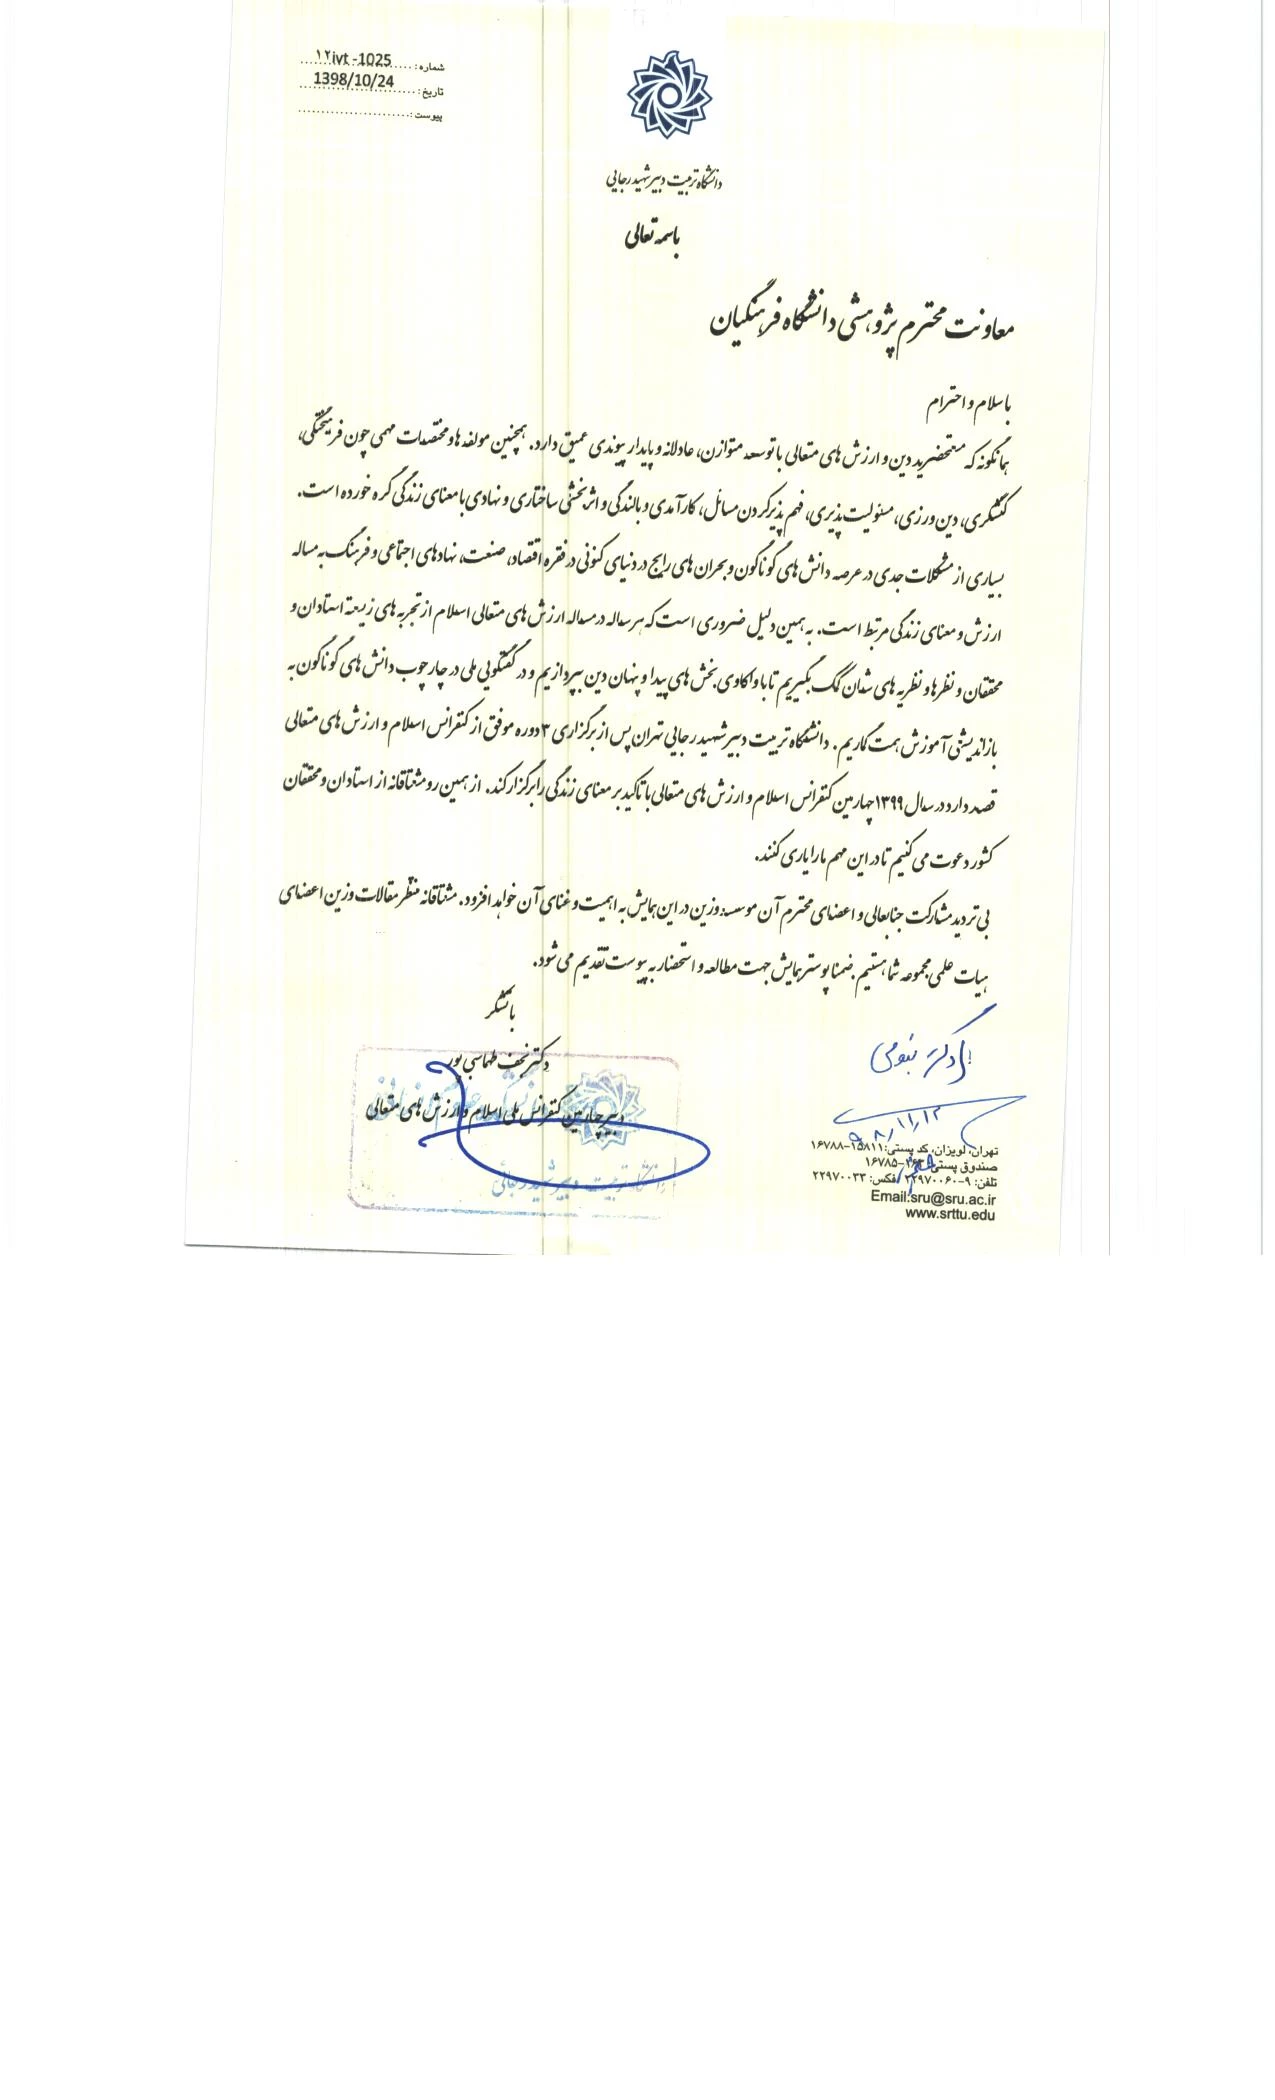 شماره: ۱۲ivt -1025
تاریخ: 1398/10/24
پیوست:
دانشگاه تربیت دبیر شهید رجایی
باسمه تعالی
معاونت محترم پژوهشی دانشگاه فرهنگیان
با سلام و احترام
همانگونه که مستحضرید دین و ارزش های متعالی با توسعه متوازن، عادلانه و پایدار پیوندی عمیق دارد. همچنین مولفه ها و مختصات مهمی چون فرهیختگی،
کنشگری، دین ورزی، مسئولیت پذیری، فهم پذیر کردن مسائل، کارآمدی و بالندگی و اثربخشی ساختاری و نهادی با معنای زندگی گره خورده است.
بسیاری از مشکلات جدی در عرصه دانش های گوناگون و بحران های رایج در دنیای کنونی در فقره اقتصاد، صنعت، نهادهای اجتماعی و فرهنگ به مساله
ارزش و معنای زندگی مرتبط است. به همین دلیل ضروری است که هر ساله در مساله ارزش های متعالی اسلام از تجربه های زیسته استادان و
محققان و نظرها و نظریه های شان کمک بگیریم تا با واکاوی بخش های پیدا و پنهان دین بپردازیم و در گفتگویی ملی در چارچوب دانش های گوناگون به
بازاندیشی آموزش همت گماریم. دانشگاه تربیت دبیر شهید رجایی تهران پس از برگزاری ۳ دوره موفق از کنفرانس اسلام و ارزش های متعالی
قصد دارد در سال ۱۳۹۹ چهارمین کنفرانس اسلام و ارزش های متعالی با تاکید بر معنای زندگی را برگزار کند. از همین رو مشتاقانه از استادان و محققان
کشور دعوت می کنیم تا در این مهم ما را یاری کنند.
بی تردید مشارکت جنابعالی و اعضای محترم آن موسسه وزین در این همایش به اهمیت و غنای آن خواهد افزود. مشتاقانه منتظر مقالات وزین اعضای
هیات علمی مجموعه شما هستیم. ضمنا پوستر همایش جهت مطالعه و استحضار به پیوست تقدیم می شود.
با تشکر
دکتر نجف طهماسبی پور
دبیر چهارمین کنفرانس ملی اسلام و ارزش های متعالی
دانشگاه تربیت دبیر شهید رجائی
دکتر
۹۸/۱۱/۱۲
تهران، لویزان، کد پستی: ۱۵۸۱۱-۱۶۷۸۸
صندوق پستی: ۱۶۷۸۵-
تلفن: ۹-۲۲۹۷۰۰۶۰ فکس: ۲۲۹۷۰۰۳۳
Email:sru@sru.ac.ir
www.srttu.edu